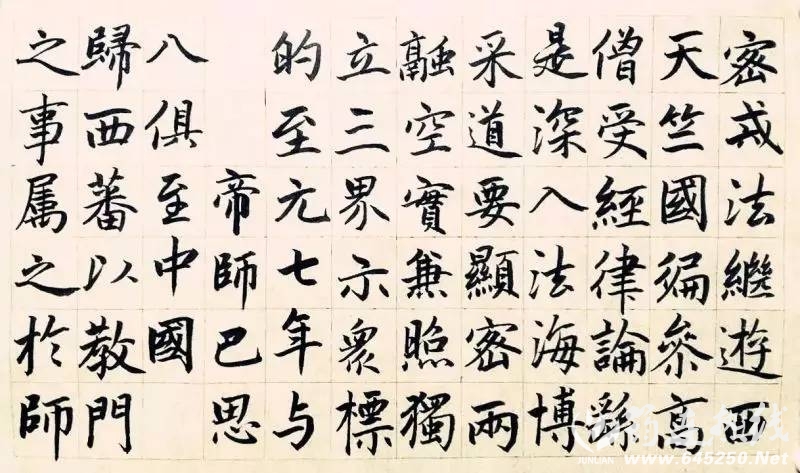 密戒法繼遊西
天竺國徧參高
僧受經律論繇
是深入法海博
采道要顯密兩
融空實兼照獨
立三界示眾標
的至元七年与
帝師巴思
八俱至中國
歸西蕃以教門
之事属之於師
JUNLUAN
www.645250.Net